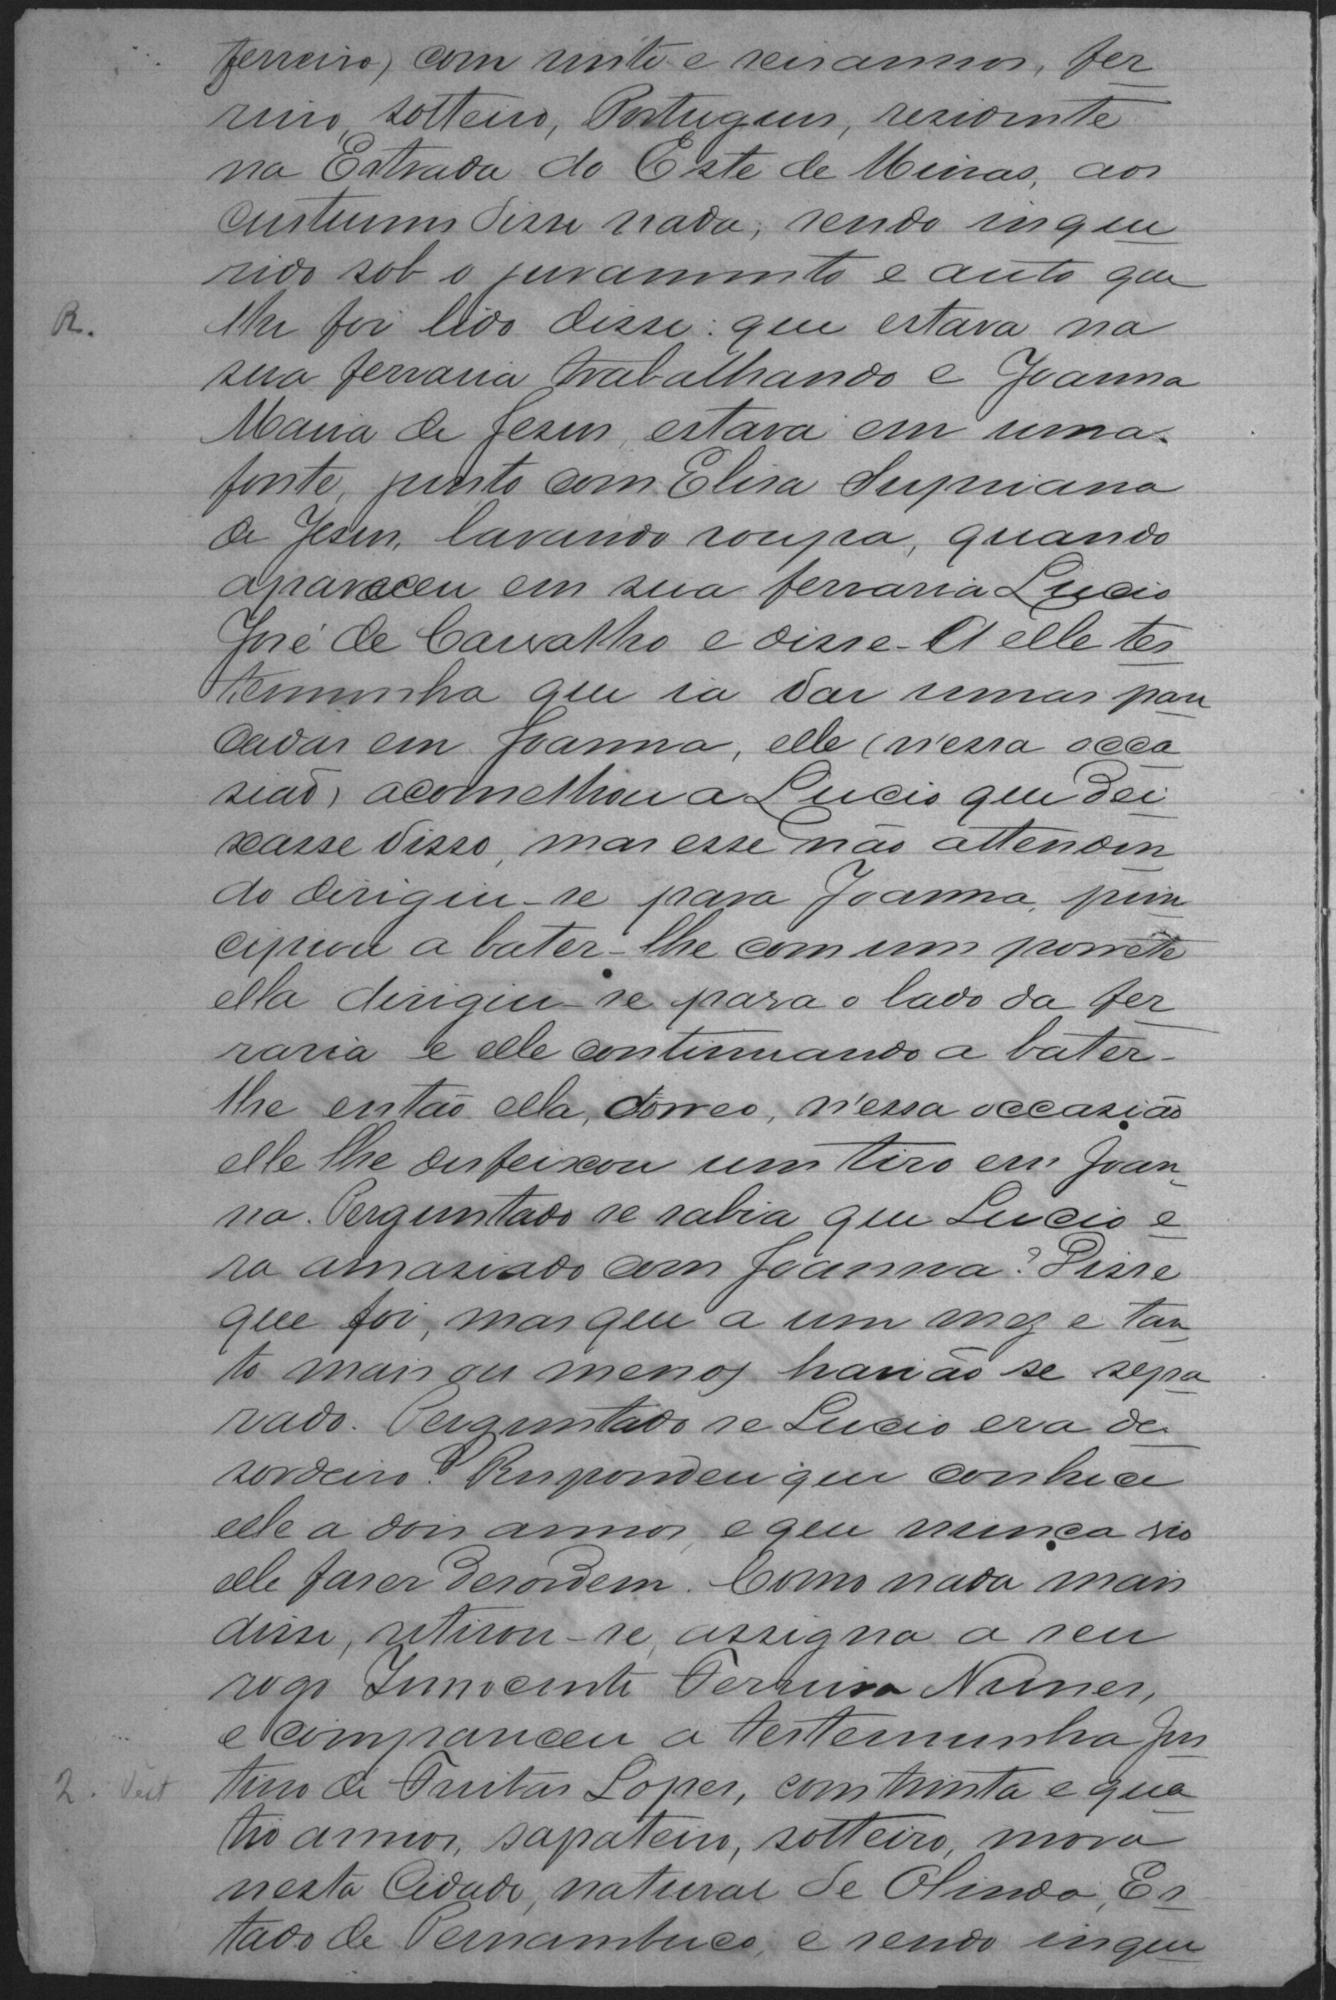 ferreiro) com vinte e seis annos, fer
reiro, solteiro, Portugues, residente
na Estrada do Este de Minas, aos
custumes disse nada; sendo inque
rido sob o juramento e auto que
R.
lhe foi lido disse: que estava na
sua ferraria trabalhando e Joanna
Maria de Jesus, estava em uma
fonte, junto com Elisa Supriana
de Jesus, lavando roupa, quando
apareceu em sua ferraria Lucio
José de Carvalho e disse-A elle tes
temunha que ia dar umas pan
cadas em Joanna, elle (n'essa occa
sião) aconselhou a Lucio que dei
xasse disso, mas esse não attenden
do dirigiu-se para Joanna, prin
cipiou a bater-lhe com um porrete
ella dirigiu-se para o lado da fer
raria e elle continuando a bater-
lhe então ella, correo, n'essa occasião
elle lhe desfeixou um tiro em Joan
na. Perguntado se sabia que Lucio e
ra amasiado com Joanna? Disse
que foi, mas que a um mez e tan
to mais ou menos havião se sepa
rado. Perguntado se Lucio era de
sordeiro? Respondeu que conhece
elle a dois annos, e que nunca vio
elle faser desordem. Como nada mais
disse, retirou-se, assigna a seu
rogo Innocente Ferreira Nunes,
e compareceu a testemunha Jus
2. Test
tino de Freitas Lopes, com trinta e qua
tro annos, sapateiro, solteiro, mora
nesta Cidade, natural de Olinda, Es
tado de Pernambuco, e sendo inque